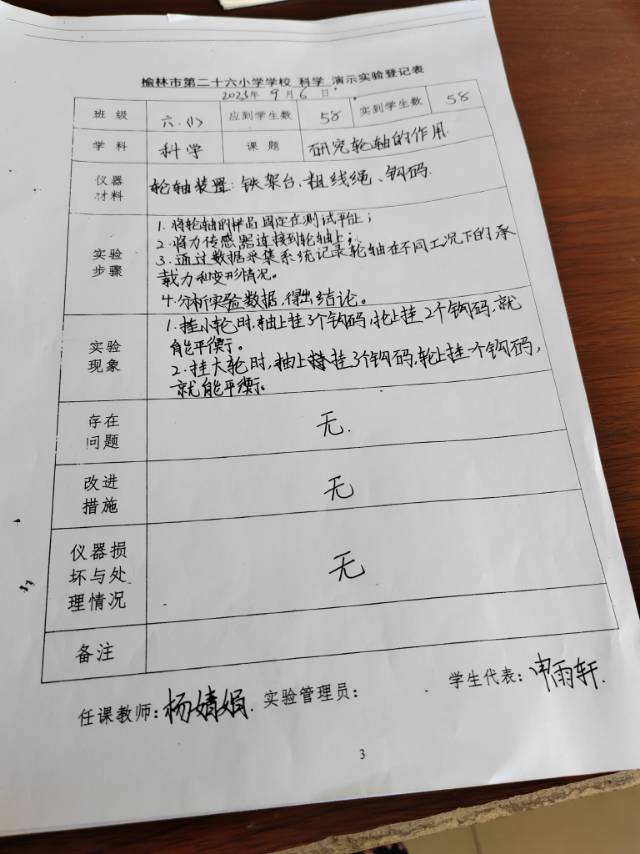 榆林市第二十六小学学校 科学 演示实验登记表
2023年 9月 6日
班级 六.(1) 应到学生数 58 实到学生数 58
学科 科学 课题 研究轮轴的作用
仪器材料 轮轴装置:铁架台、粗线绳、钩码.
实验步骤
1.将轮轴的样品固定在测试平台上;
2.将力传感器连接到轮轴上;
3.通过数据采集系统记录轮轴在不同工况下的承
载力和变形情况。
4.分析实验数据,得出结论。
实验现象
1.挂小轮时,轴上挂3个钩码,轮上挂2个钩码,就
能平衡。
2.挂大轮时,轴上挂3个钩码,轮上挂一个钩码,
就能平衡。
存在问题 无.
改进措施 无
仪器损坏与处理情况 无
备注
任课教师:杨婧娟. 实验管理员: 学生代表:申雨轩.
3